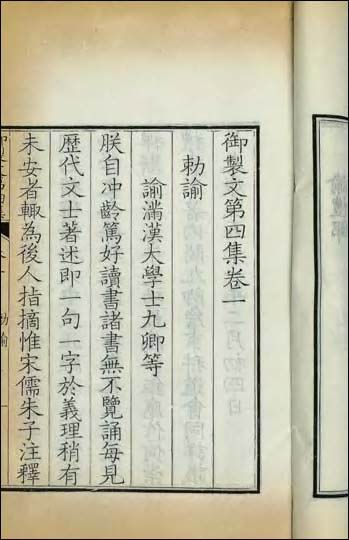 御製文第四集卷一
勅諭
諭滿漢大學士九卿等
朕自沖齡篤好讀書諸書無不覽誦每見
歷代文士著述即一句一字於義理稍有
未安者輒為後人指摘惟宋儒朱子注釋